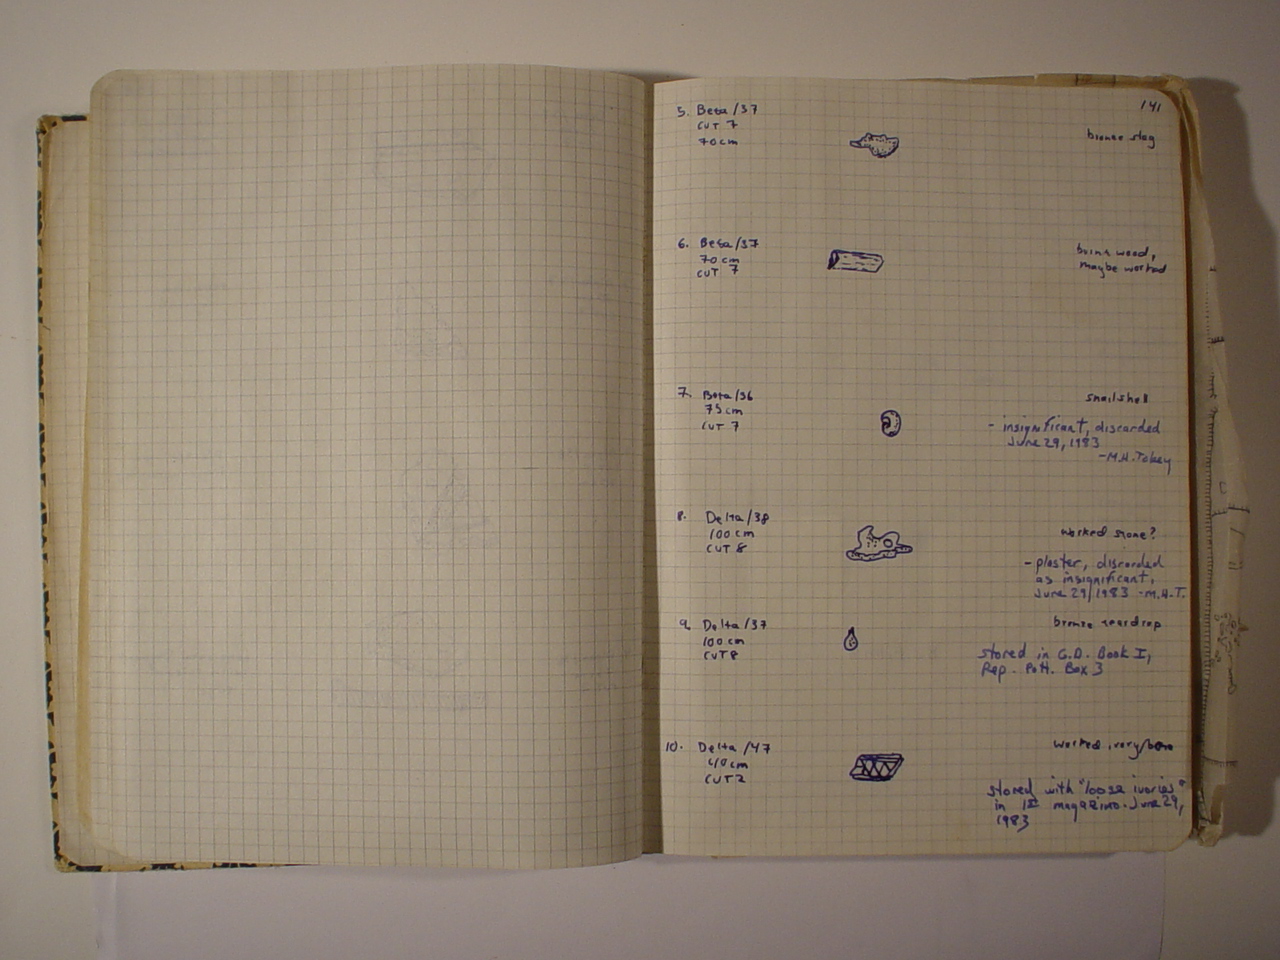 141
5. Beta/37
CUT 7
70cm
bronze slag
6. Beta/37
70 cm
CUT 7
wood,
maybe worked
7. Beta/36
75 cm
CUT 7
snail shell
- insignificant, discarded
June 29, 1983
-M.H. Tobey
8. Delta/38
100 cm
CUT 8
worked stone?
- plaster, discarded
as insignificant,
June 29/1983 -M.H.T.
9. Delta/37
100 cm
CUT 8
bronze teardrop
stored in G.D. Book I,
Rep. Pott. Box 3
10. Delta/47
40 cm
CUT 2
worked ivory/bone
stored with "loose ivories"
in 1st magazine. June 29,
1983